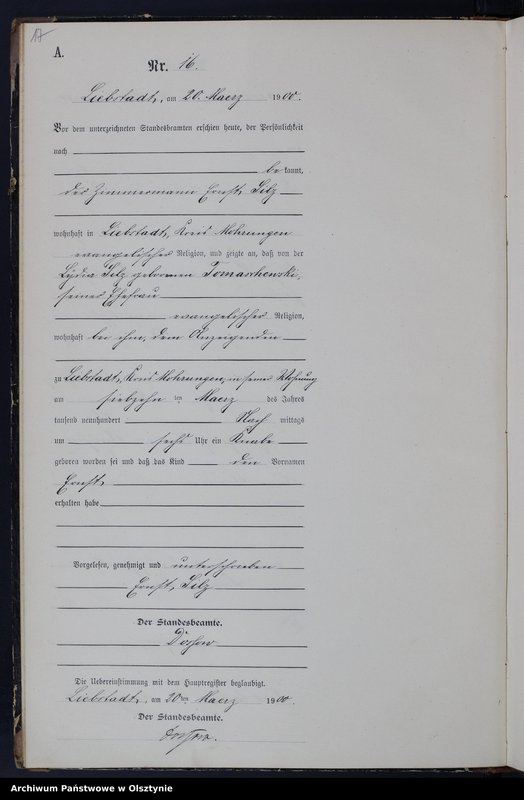 17
A.
Nr. 16.
Liebstadt, am 20. Maerz 1900.
Vor dem unterzeichneten Standesbeamten erschien heute, der Persönlichkeit
nach
bekannt,
der Zimmermann Ernst
wohnhaft in Liebstadt, Kreis Mohrungen
evangelischer Religion, und zeigte an, daß von der
geborenen Tomaschewski,
seiner Ehefrau
evangelischer Religion,
wohnhaft bei ihm, dem Anzeigenden
zu Liebstadt, Kreis Mohrungen, in seiner Wohnung
am siebzehn ten Maerz des Jahres
tausend neunhundert Nach mittags
um sechs Uhr ein Knabe
geboren worden sei und daß das Kind den Vornamen
Ernst,
erhalten habe
Vorgelesen, genehmigt und unterschrieben
Ernst
Der Standesbeamte.
Die Uebereinstimmung mit dem Hauptregister beglaubigt.
Liebstadt, am 20ten Maerz 1900.
Der Standesbeamte.
Archiwum Państwowe w Olsztynie